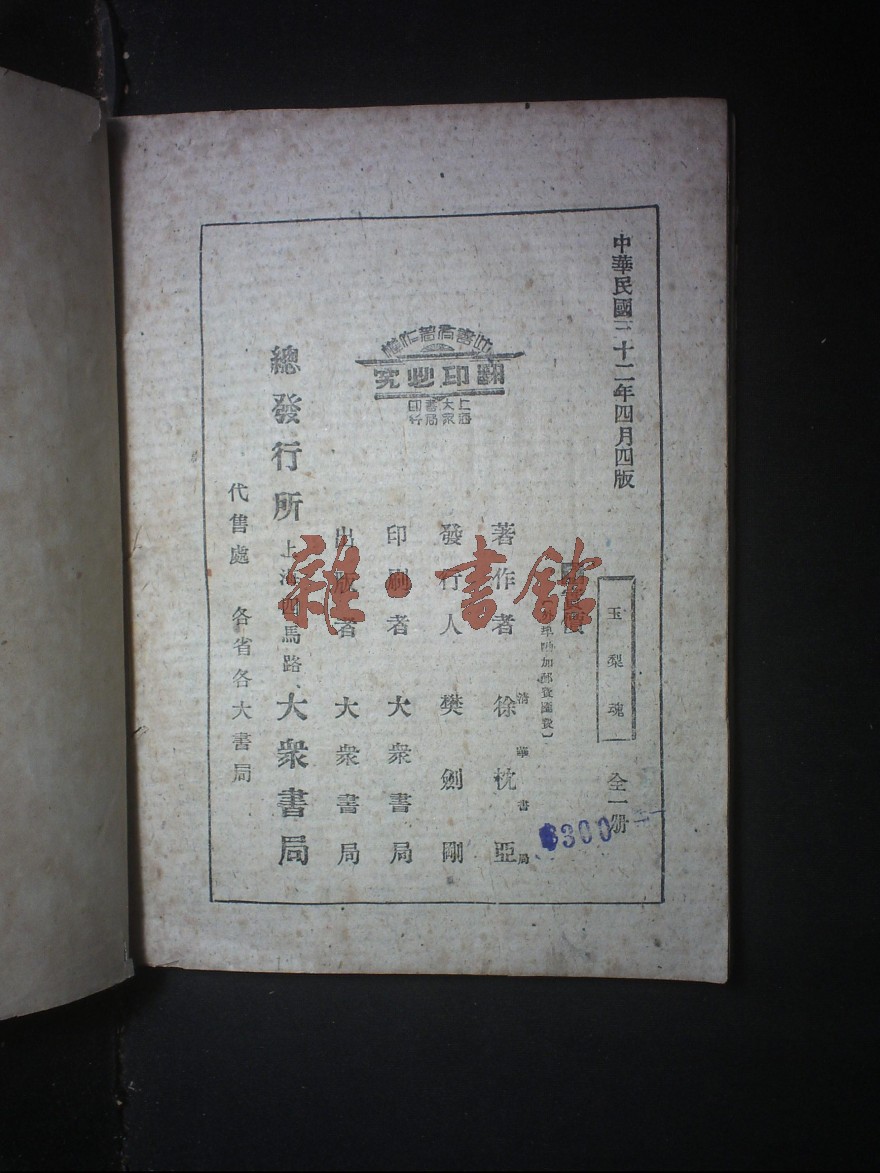 中華民國三十二年四月四版
玉梨魂 全一冊
價
3300
清華書局
著作者 徐枕亞
發行人 樊劍剛
印刷者 大衆書局
出版者 大衆書局
總發行所 上海四馬路 大衆書局
代售處 各省各大書局
此書有著作權
翻印必究
上海
大衆
書局
印行
雜·書館